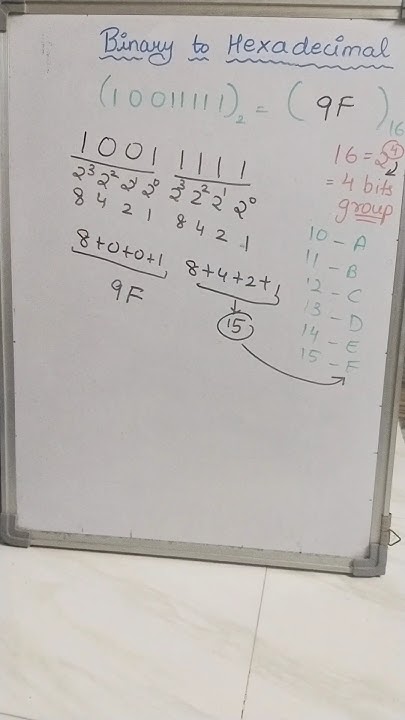 Binary to Hexadecimal
(10011111)₂ = (9F)₁₆
1001 1111
2³ 2² 2¹ 2⁰ 2³ 2² 2¹ 2⁰
8 4 2 1 8 4 2 1
8+0+0+1 8+4+2+1
9F
15
16=2⁴
= 4 bits
group
10 - A
11 - B
12 - C
13 - D
14 - E
15 - F